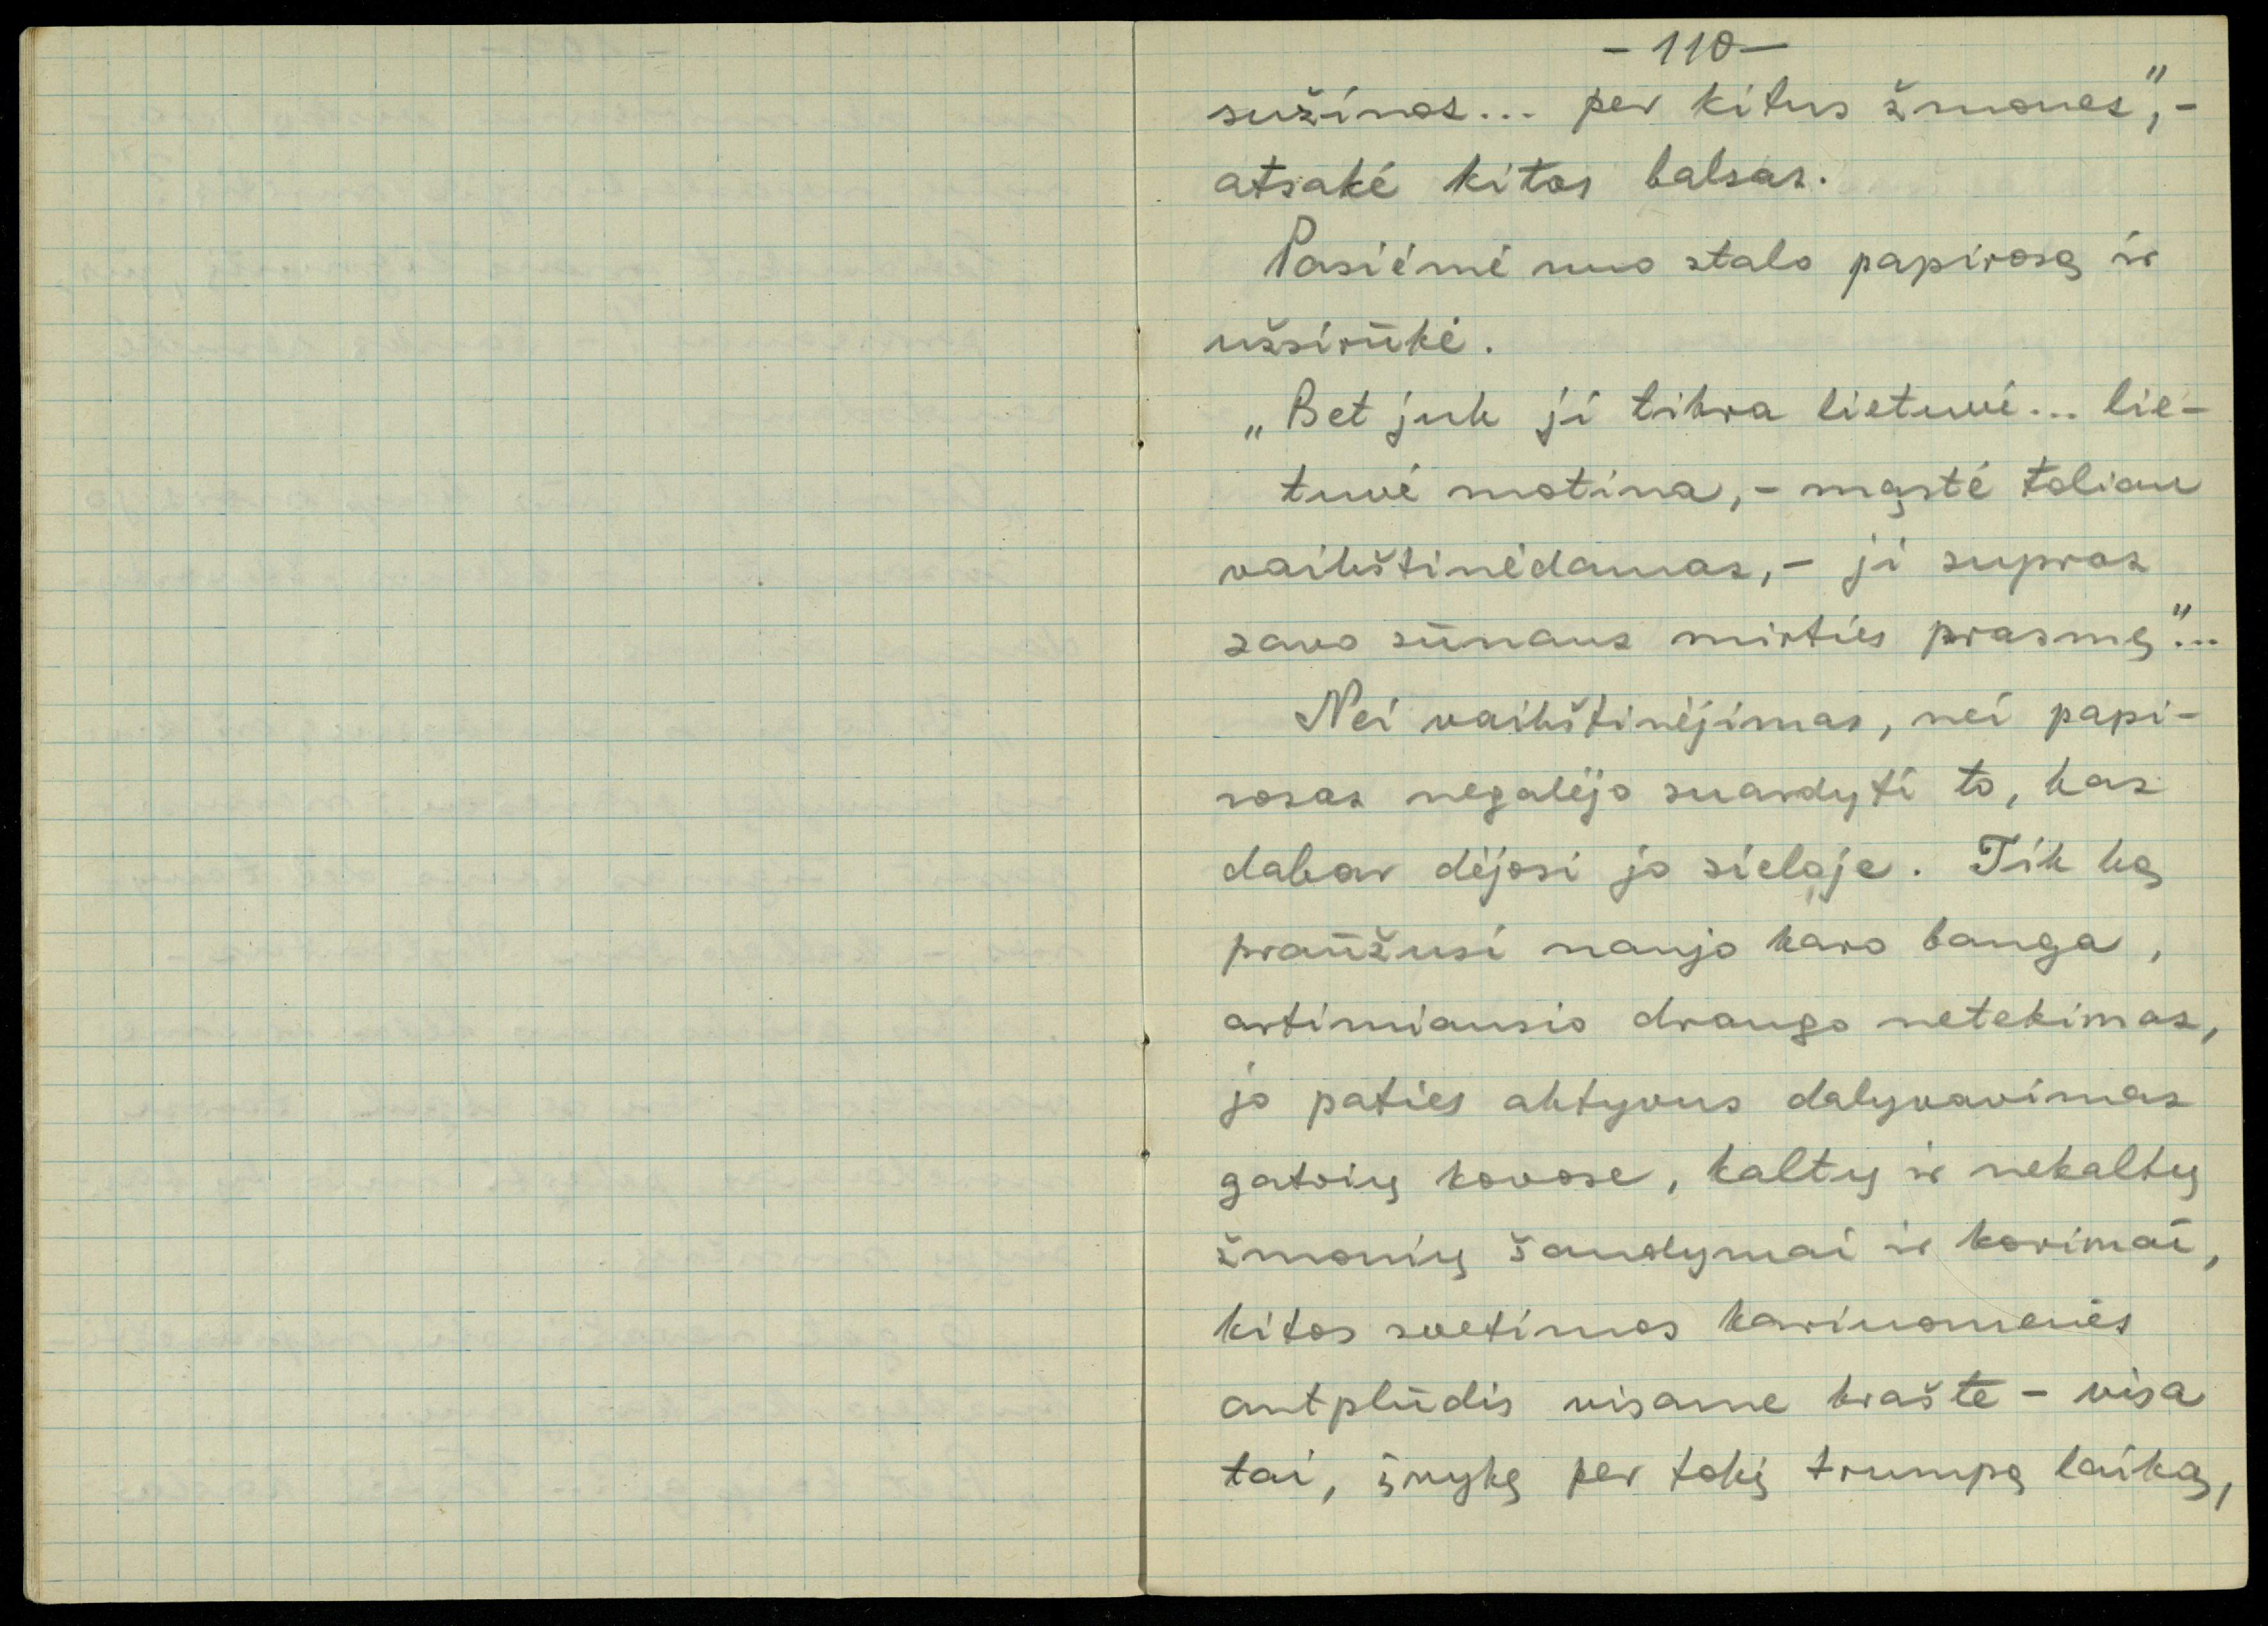 - 110 -
sužinos... per kitus žmones", -
atsakė kitas balsas.
Pasiėmė nuo stalo papirosą ir
užsirūkė.
„Bet juk ji tikra lietuvė... lie-
tuvė motina, - mąstė toliau
vaikštinėdamas, - ji supras
savo sūnaus mirties prasmę"...
Nei vaikštinėjimas, nei papi-
rosas negalėjo suardyti to, kas
dabar dėjosi jo sieloje. Tik ką
praūžusi naujo karo banga,
artimiausio draugo netekimas,
jo paties aktyvus dalyvavimas
gatvių kovose, kaltų ir nekaltų
žmonių šaudymai ir korimai,
kitos svetimos kariuomenės
antplūdis visame krašte - visa
tai, įvykę per tokį trumpą laiką,